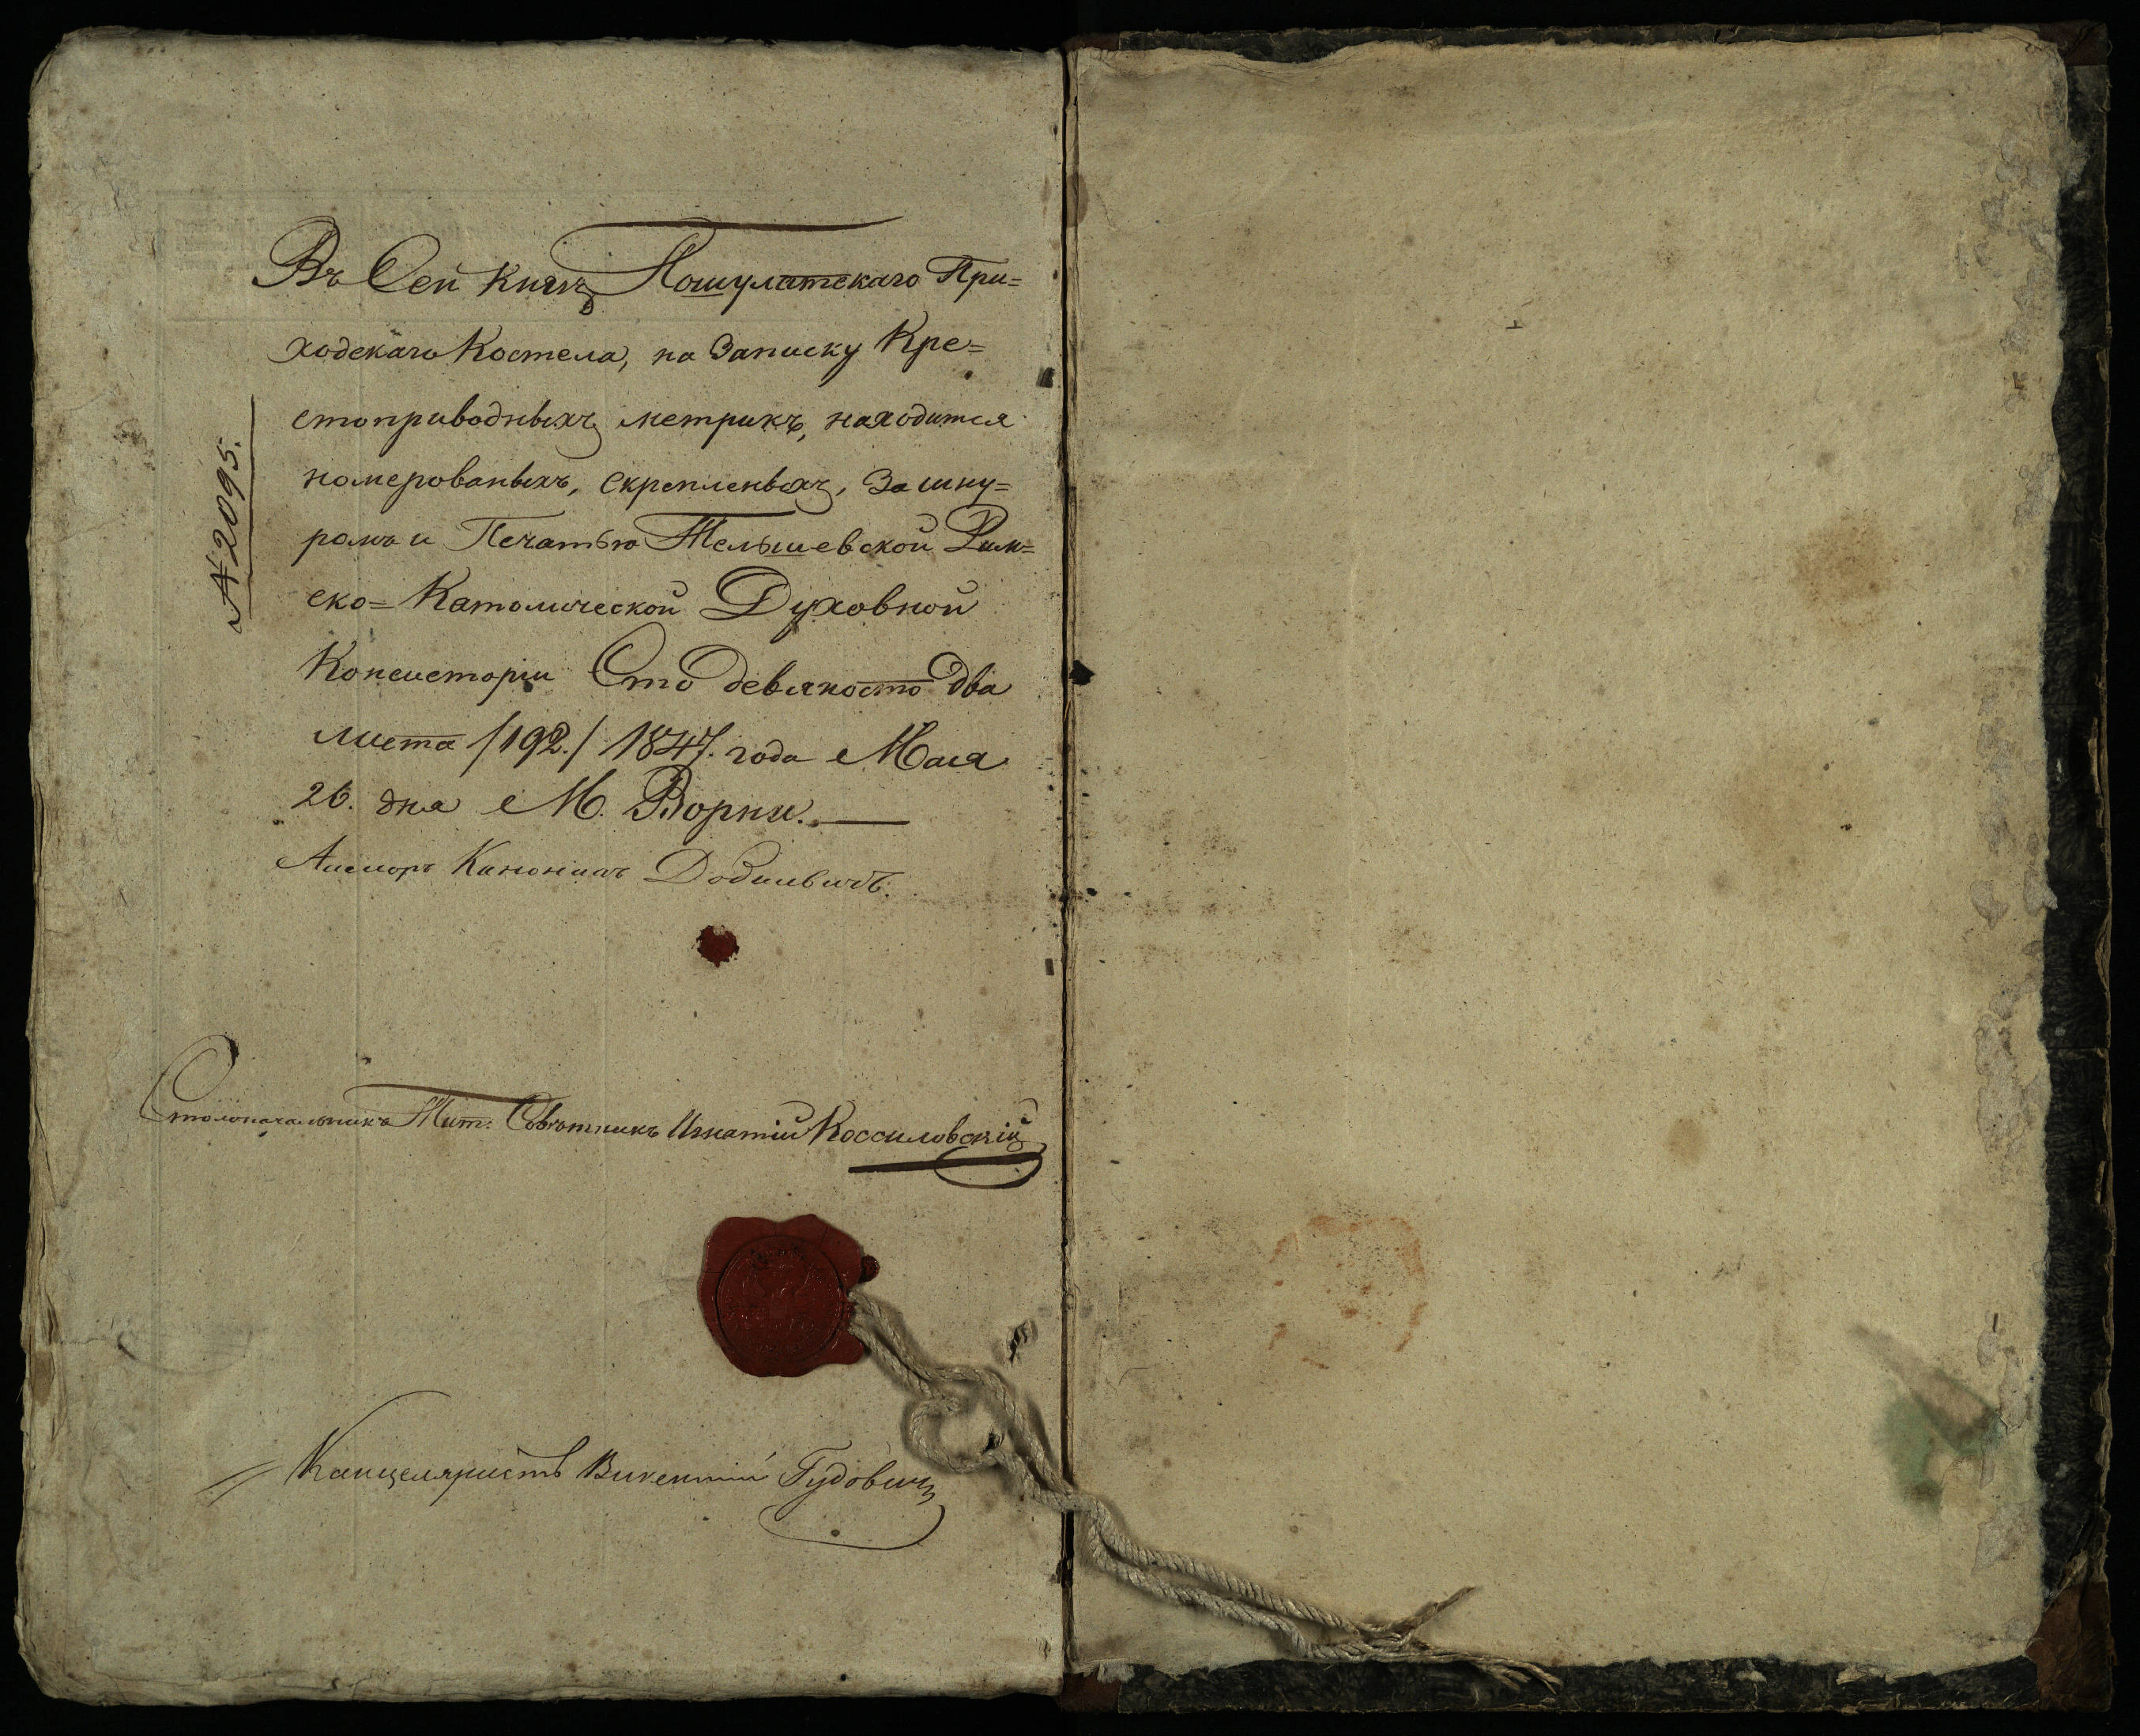 Въ Сей книгѣ Пошулатскаго При=
ходскаго Костела, на Записку Кре=
стоприводныхъ метрикъ, находится
номерованыхъ, скрепленыхъ, За шну=
ромъ и Печатью Тельшевской Рим=
ско= Католической Духовной
Консисторіи Сто девяносто два
листа /192./ 1847. года Мая
26. дня М. Ворни.
Ассесоръ Каноникъ
№ 2095.
Столоначальникъ Тит. Совѣтникъ Игнатій Коссиловскій
Канцеляристъ Викентій Гудовичъ